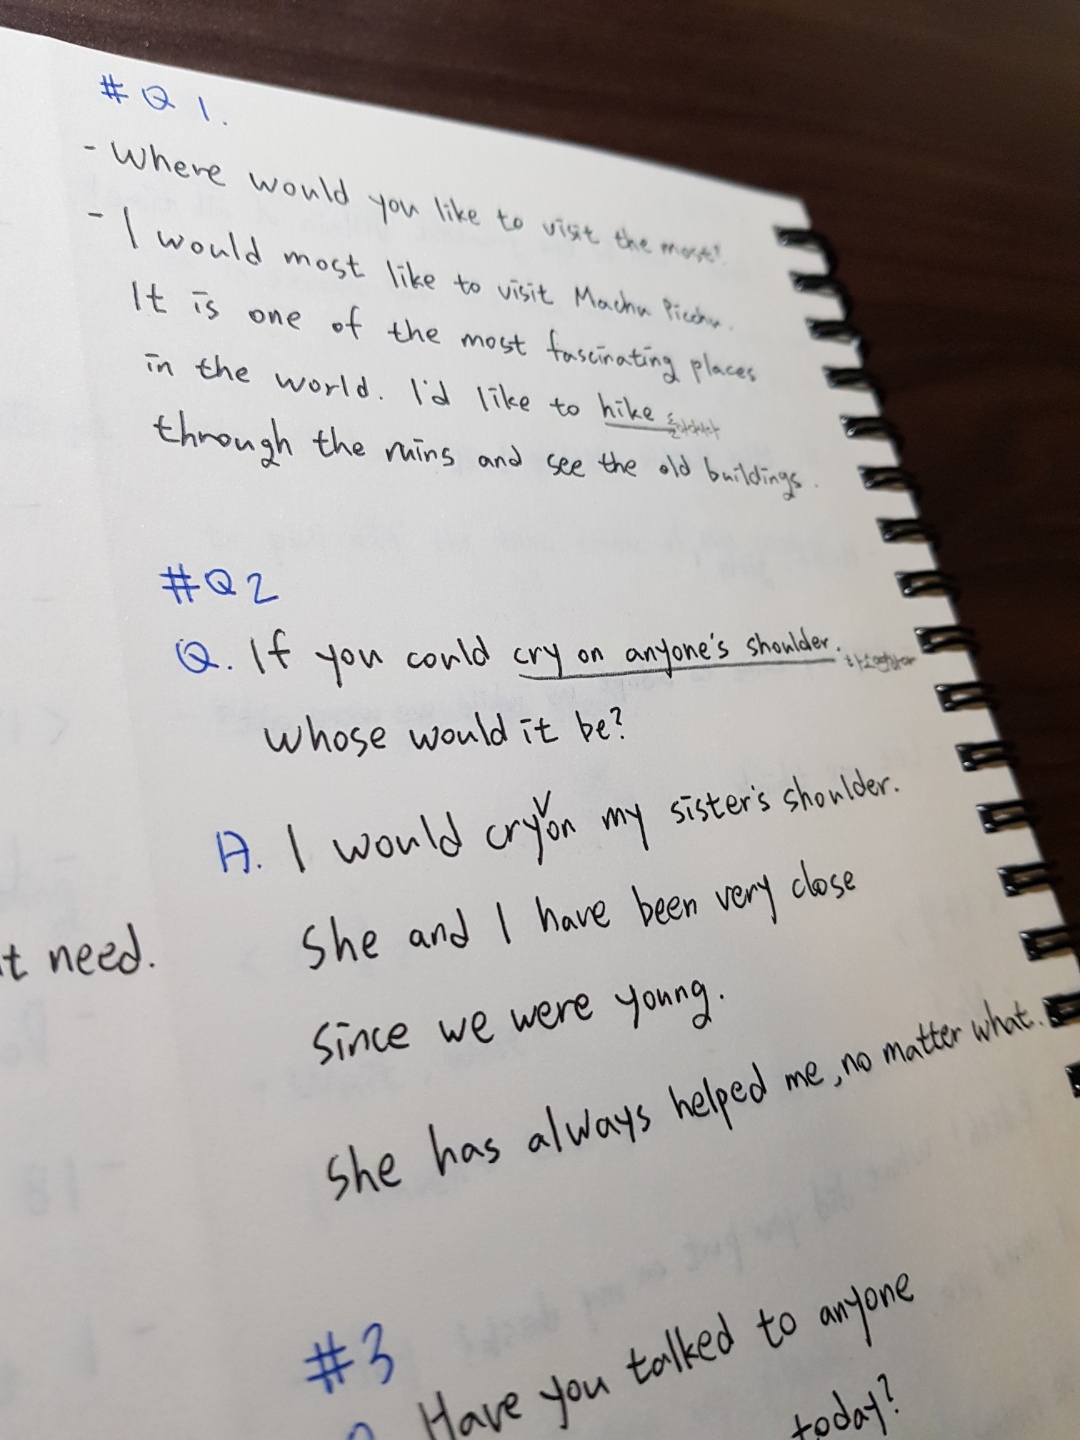 #Q1.
- Where would you like to visit the most?
- I would most like to visit Machu Picchu.
It is one of the most fascinating places
in the world. I'd like to hike
through the ruins and see the old buildings.
#Q2
Q. If you could cry on anyone's shoulder.
whose would it be?
A. I would cry on my sister's shoulder.
She and I have been very close
since we were young.
t need.
She has always helped me, no matter what.
#3
Have you talked to anyone
today?